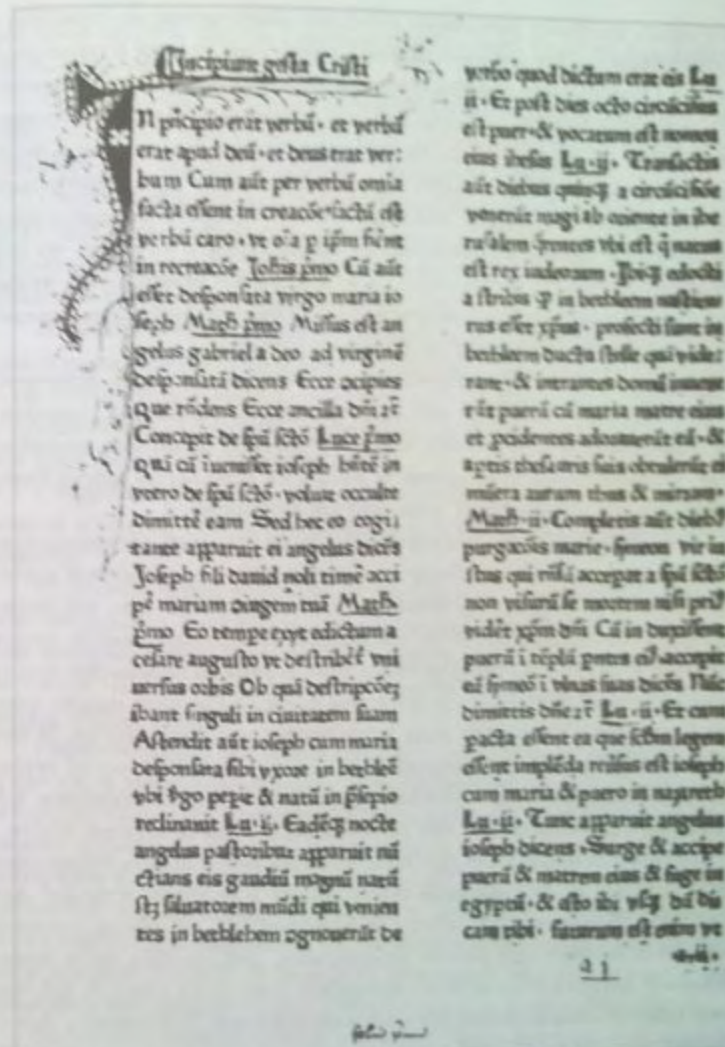 Incipiunt gesta Cristi
IN pͥncipio erat verbū· et verbū
erat apud deū·et deus erat ver:
bum Cum aūt per verbū omia
facta essent in creacōe factū est
verbū caro·vt oīa p ip̄m fierēt
in recreacōe Joh̄is pͥmo Cū aūt
esset desponsata virgo maria io
seph Math̄ pͥmo Missus est an
gelus gabriel a deo ad virginē
desponsatā dicens Ecce ↄcipies
que rn̄dens Ecce ancilla dn̄i ⁊c̄
Concepit de spū scō Luce pͥmo
qui cū iuenisset ioseph h̄ntē in
vtero de spū scō·voluit occulte
dimittē eam Sed hec eo cogi
tante apparuit ei angelus dicēs
Joseph fili dauid noli timē acci
pē mariam ↄiugem tuā Math̄
pͥmo Eo tempe exijt edictum a
cesare augusto vt describēt vni
uersus orbis Ob quā descripcōeꝫ
ibant singuli in ciuitatem suam
Ascendit aūt ioseph cum maria
desponsata sibi vxore in bethleē
vbi v̄go pepit & natū in p̄sepio
reclinauit Lu·ij· Eadēqꝫ nocte
angelus pastoribus apparuit nū
ctians eis gaudiū magnū natū
scꝫ saluatorem mūdi qui venien
tes in bethlehem ↄgnouerūt de
verbo quod dictum erat eis Lu
ii·Et post dies octo circūcisus
est puer·& vocatum est nomen
eius ihesus Lu·ij· Transactis
aūt diebus quinqꝫ a circūcisiōe
venerūt magi ab oriente in ihe
rusalem q̄rentes vbi est q̄ natus
est rex iudeorum·Ibiqꝫ edocti
a scribis ꝙ in bethleem
rus esset xp̄us·profecti sunt in
bethleem ductu stelle quā vide
rant·& intrantes domū inuene
rūt puerū cū maria matre eius
et ꝓcidentes adorauerūt eū·&
aptis thesauris suis obtulerūt ei
munera aurum thus & mirram
Math̄·ii·Completis aūt dieb
purgacōis marie·symeon vir iu
stus qui accepat a spū scō
non visurū se mortem nisi priꝰ
vidēt xp̄m dn̄i Cū induxissent
puerū ī tēplū pntes eiꝰ accepit
eū symeō ī vlnas suas dicēs Nūc
dimittis dn̄e ⁊c̄ Lu·ii·Et cum
pacta essent ea que scdm legem
essent implēda reūsus est ioseph
cum maria & puero in nazareth
Lu·ii· Tunc apparuit angelus
ioseph dicens·Surge & accipe
puerū & matrem eius & fuge in
egyptū·& esto ibi vsqꝫ dū di
cam tibi· futurum est enim vt
a j